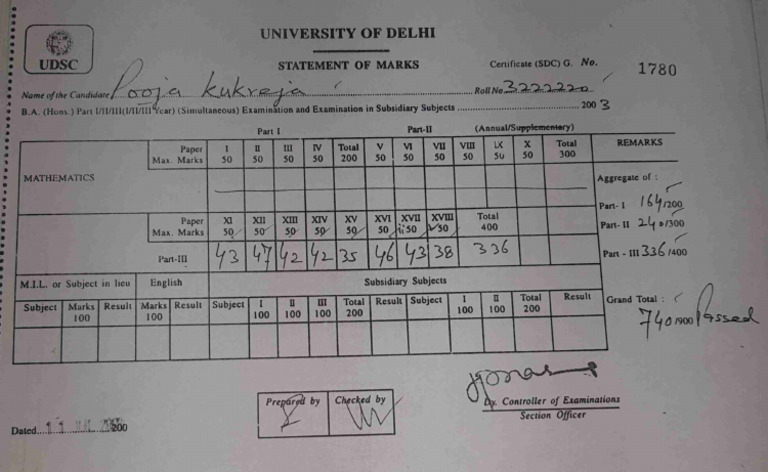 UNIVERSITY OF DELHI
UDSC
STATEMENT OF MARKS
Certificate (SDC) G. No. 1780
Name of the Candidate Pooja Kukreja Roll No 3222220
B.A. (Hons.) Part I/II/III(I/II/III Year) (Simultaneous) Examination and Examination in Subsidiary Subjects 2003
Part I Part-II (Annual/Supplementary)
Paper I II III IV Total V VI VII VIII IX X Total REMARKS
Max. Marks 50 50 50 50 200 50 50 50 50 50 50 300
MATHEMATICS
Aggregate of :
Part- I 164/200
Paper XI XII XIII XIV XV XVI XVII XVIII Total
Max. Marks 50 50 50 50 50 50 50 50 400
Part- II 240/300
Part-III 43 47 42 42 35 46 43 38 336
Part - III 336/400
M.I.L. or Subject in lieu English Subsidiary Subjects
Subject Marks 100 Result Marks 100 Result Subject I 100 II 100 III 100 Total 200 Result Subject I 100 II 100 Total 200 Result
Grand Total :
740/900 Passed
Prepared by Checked by
Dy. Controller of Examinations
Section Officer
Dated 11 200